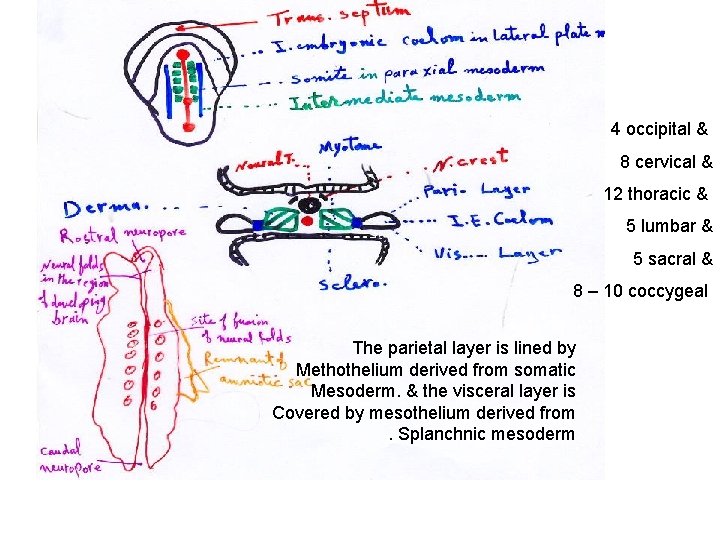 Trans. septum
I. embryonic coelom in lateral plate m
somite in paraxial mesoderm
Intermediate mesoderm
4 occipital &
8 cervical &
12 thoracic &
5 lumbar &
5 sacral &
8 – 10 coccygeal
Myotome
Neural T.
N. crest
Derma.
Pari- Layer
I.E. Coelom
Vis... Layer
Sclero.
Rostral neuropore
Neural folds
in the region
of developing
brain
site of fusion
of neural folds
Remnant of
amniotic sac
caudal
neuropore
The parietal layer is lined by
Methothelium derived from somatic
Mesoderm. & the visceral layer is
Covered by mesothelium derived from
. Splanchnic mesoderm